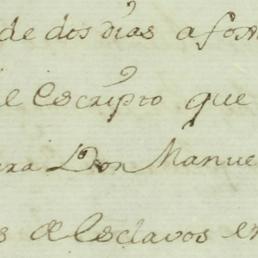 de dos dias a fon
el Escripto que
ara Don Manue
s de Esclavos en